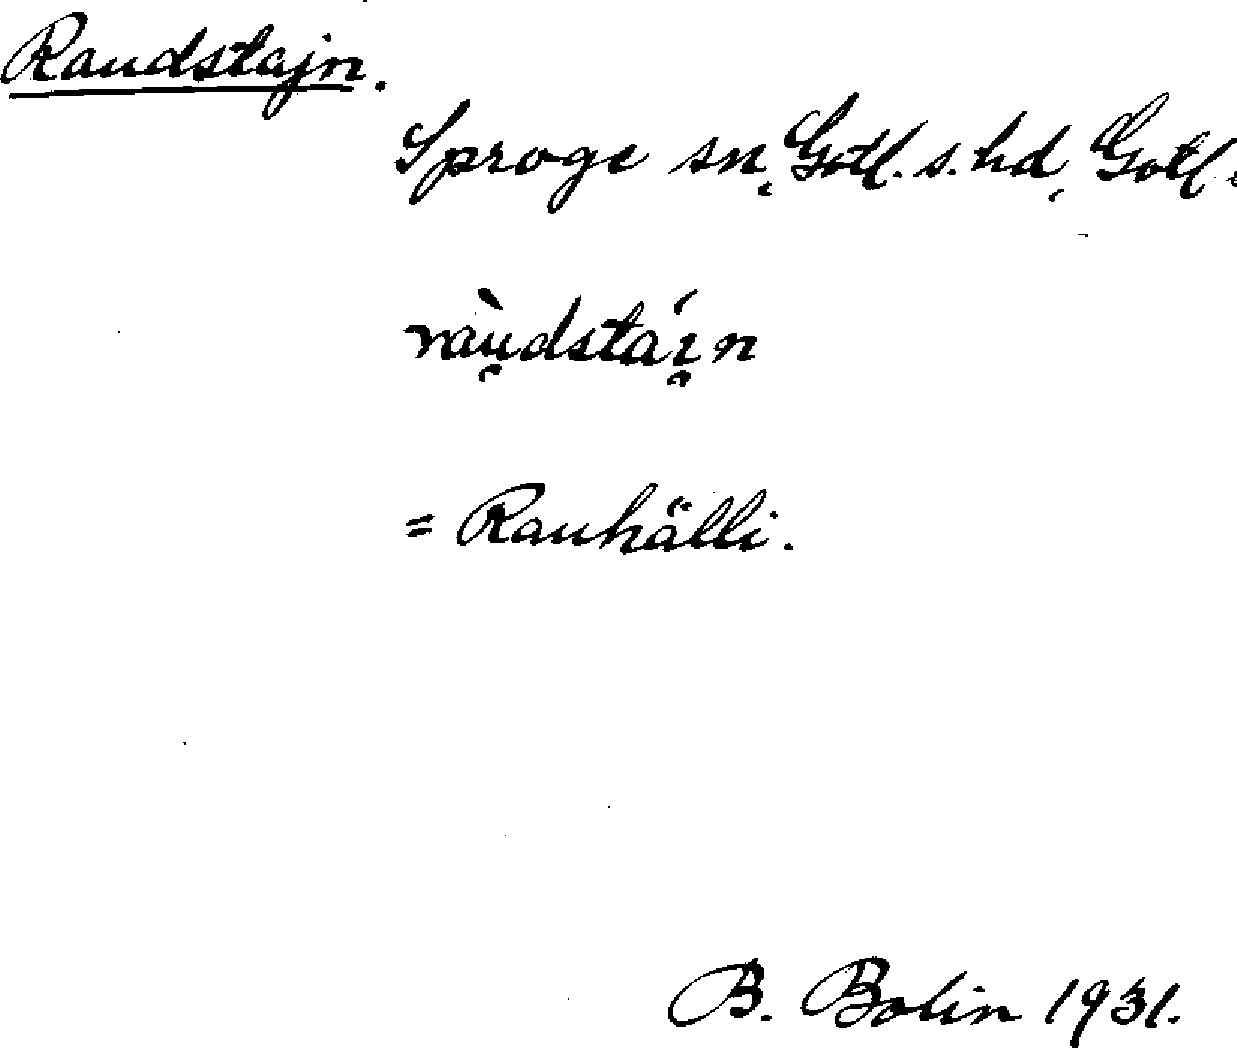 Raudstajn.
Sproge sn, Gotl. s. hd, Gotl.
raù̯dstái̯n
= Rauhälli.
B. Bolin 1931.